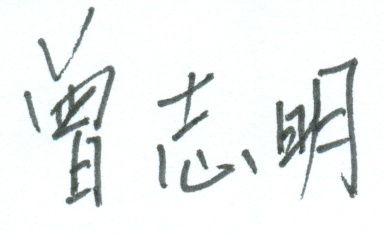 曾志明